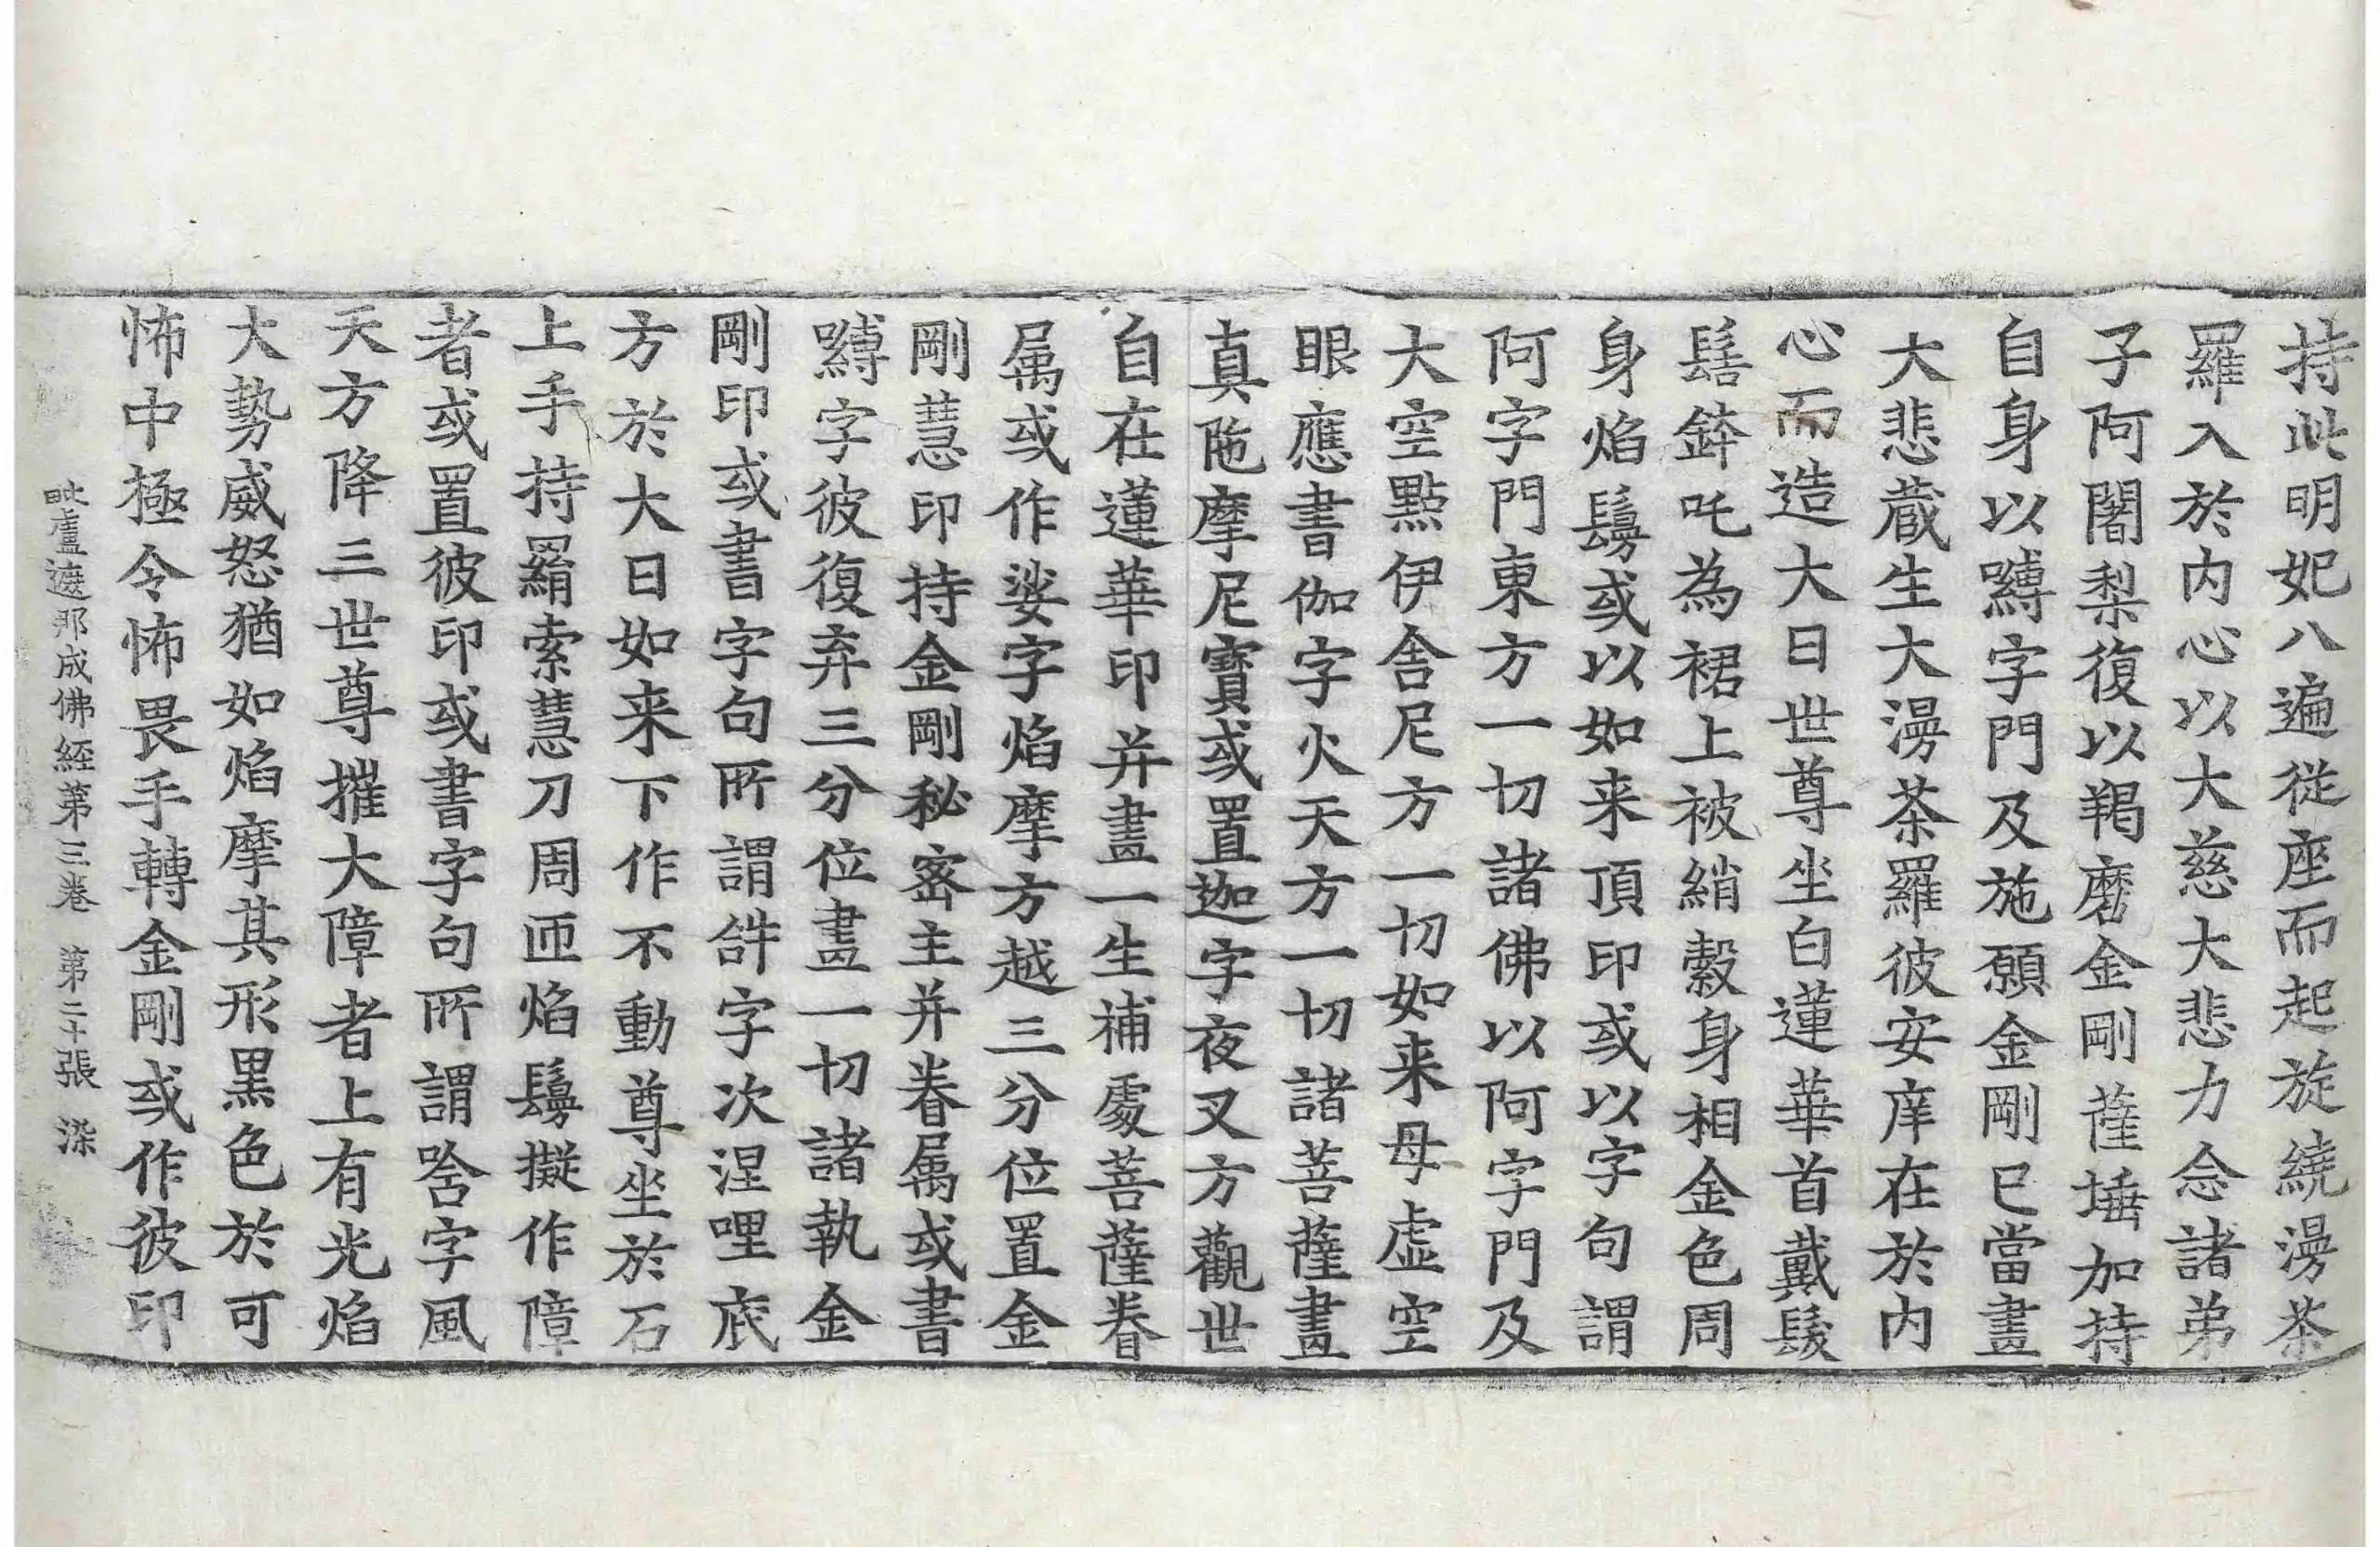 持此明妃八遍從座而起旋繞漫茶
羅入於內心以大慈大悲力念諸弟
子阿闍梨復以羯磨金剛薩埵加持
自身以嚩字門及施願金剛已當畫
大悲藏生大漫茶羅彼安庠在於內
心而造大日世尊坐白蓮華首戴髮
髻鉢吒為裙上被綃縠身相金色周
身焰鬘或以如来頂印或以字句謂
阿字門東方一切諸佛以阿字門及
大空點伊舍尼方一切如来母虛空
眼應書伽字火天方一切諸菩薩畫
真陁摩尼寶或置迦字夜叉方觀世
自在蓮華印并畫一生補處菩薩眷
属或作娑字焰摩方越三分位置金
剛慧印持金剛秘密主并眷属或書
嚩字彼復弃三分位畫一切諸執金
剛印或書字句所謂𤙖字次涅哩底
方於大日如来下作不動尊坐於石
上手持羂索慧刀周匝焰鬘擬作障
者或置彼印或書字句所謂唅字風
天方降三世尊摧大障者上有光焰
大勢威怒猶如焰摩其形黑色於可
怖中極令怖畏手轉金剛或作彼印
毗盧遮那成佛経第三卷 第二十張 染